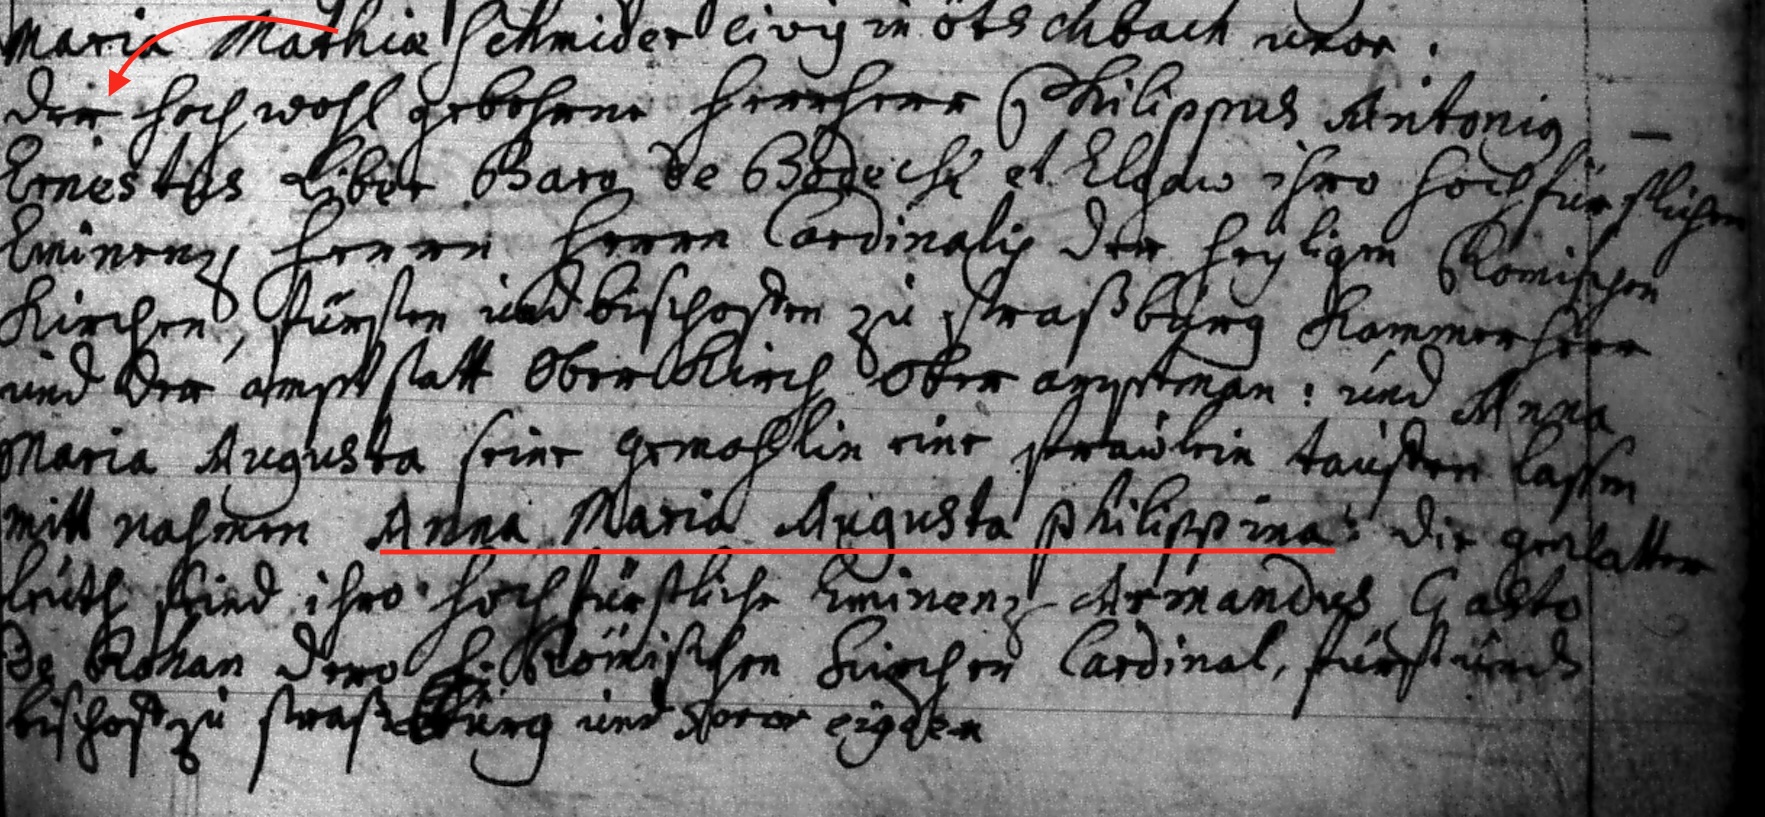 Maria Mathiæ Schmider civis in ötschbach uxor.
Der hoch wohl gebohrne herr herr Philippus Antonius
Ernestus Liber Baro de Bodeck et Elgaw ihro hochfürstlichen
Eminenz herrn herrn Cardinalis der heyligen Römischen
Kirchen, fürsten und bischoffen zu straßburg Kammerherr
und der ampt statt Oberkirch Ober amptman: und Anna
Maria Augusta seine gemahlin eine fräwlein tauffen lassen
mitt nahmen Anna Maria Augusta philippina: die gevatter
leuth seind ihro hochfürstliche Eminenz Armandus Gasto
de Rohan dero h. Römischen Kirchen Cardinal, fürst und
bischoff zu straßburg und soror eiusdem